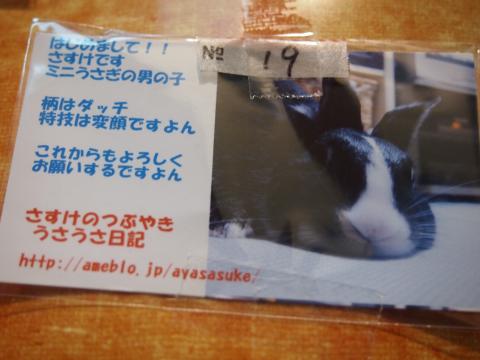 はじめまして！！
さすけです
ミニうさぎの男の子
柄はダッチ
特技は変顔ですよん
これからもよろしく
お願いするですよん
さすけのつぶやき
うさうさ日記
http://ameblo.jp/ayasasuke/
№ 19